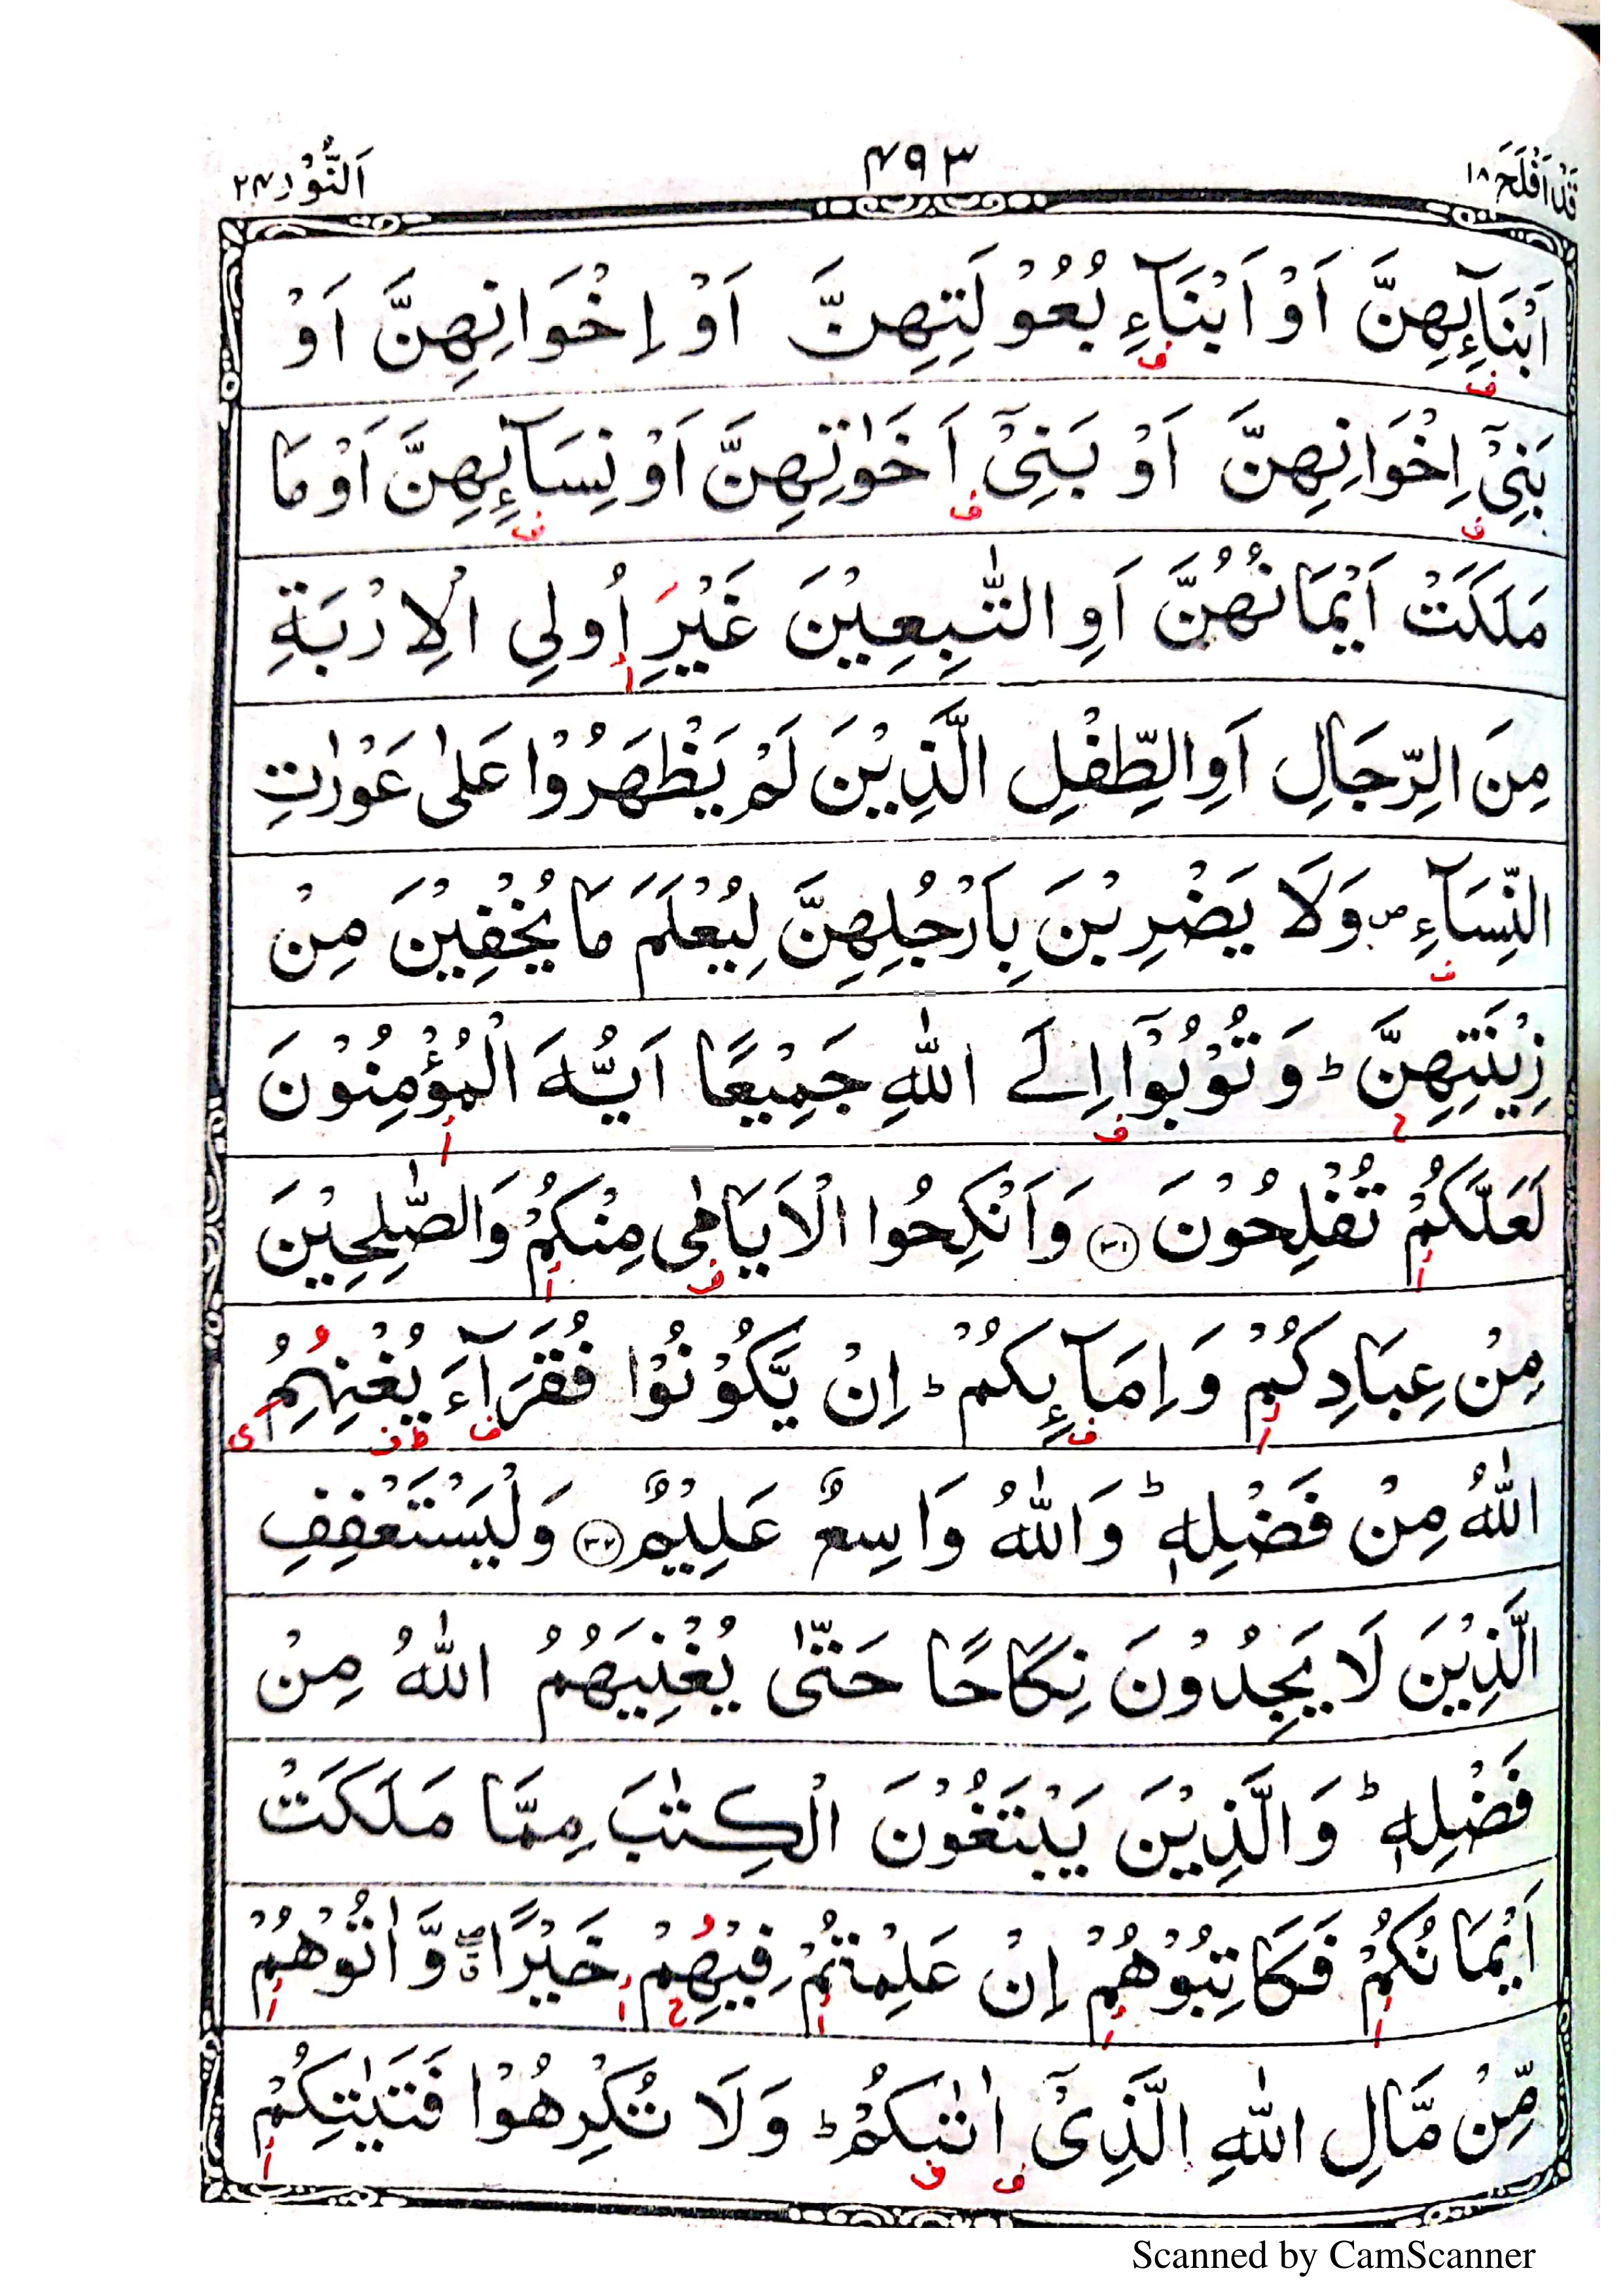 قَدْ اَفْلَحَ ١٨
٤٩٣
اَلنُّوْر ٢٤
اَبْنَآىِٕهِنَّ اَوْ اَبْنَآءِ بُعُوْلَتِهِنَّ اَوْ اِخْوَانِهِنَّ اَوْ
بَنِیْۤ اِخْوَانِهِنَّ اَوْ بَنِیْۤ اَخَوٰتِهِنَّ اَوْ نِسَآىِٕهِنَّ اَوْ مَا
مَلَكَتْ اَیْمَانُهُنَّ اَوِ التّٰبِعِیْنَ غَیْرِ اُولِی الْاِرْبَةِ
مِنَ الرِّجَالِ اَوِ الطِّفْلِ الَّذِیْنَ لَمْ یَظْهَرُوْا عَلٰی عَوْرٰتِ
النِّسَآءِ ۪ وَلَا یَضْرِبْنَ بِاَرْجُلِهِنَّ لِیُعْلَمَ مَا یُخْفِیْنَ مِنْ
زِیْنَتِهِنَّ ؕ وَتُوْبُوْۤا اِلَی اللّٰهِ جَمِیْعًا اَیُّهَ الْمُؤْمِنُوْنَ
لَعَلَّكُمْ تُفْلِحُوْنَ ۝۳۱ وَاَنْكِحُوا الْاَیَامٰی مِنْكُمْ وَالصّٰلِحِیْنَ
مِنْ عِبَادِكُمْ وَاِمَآىِٕكُمْ ؕ اِنْ یَّكُوْنُوْا فُقَرَآءَ یُغْنِهِمُ
اللّٰهُ مِنْ فَضْلِهٖ ؕ وَاللّٰهُ وَاسِعٌ عَلِیْمٌ ۝۳۲ وَلْیَسْتَعْفِفِ
الَّذِیْنَ لَا یَجِدُوْنَ نِكَاحًا حَتّٰی یُغْنِیَهُمُ اللّٰهُ مِنْ
فَضْلِهٖ ؕ وَالَّذِیْنَ یَبْتَغُوْنَ الْكِتٰبَ مِمَّا مَلَكَتْ
اَیْمَانُكُمْ فَكَاتِبُوْهُمْ اِنْ عَلِمْتُمْ فِیْهِمْ خَیْرًا ۖۗ وَّاٰتُوْهُمْ
مِّنْ مَّالِ اللّٰهِ الَّذِیْۤ اٰتٰىكُمْ ؕ وَلَا تُكْرِهُوْا فَتَیٰتِكُمْ
Scanned by CamScanner